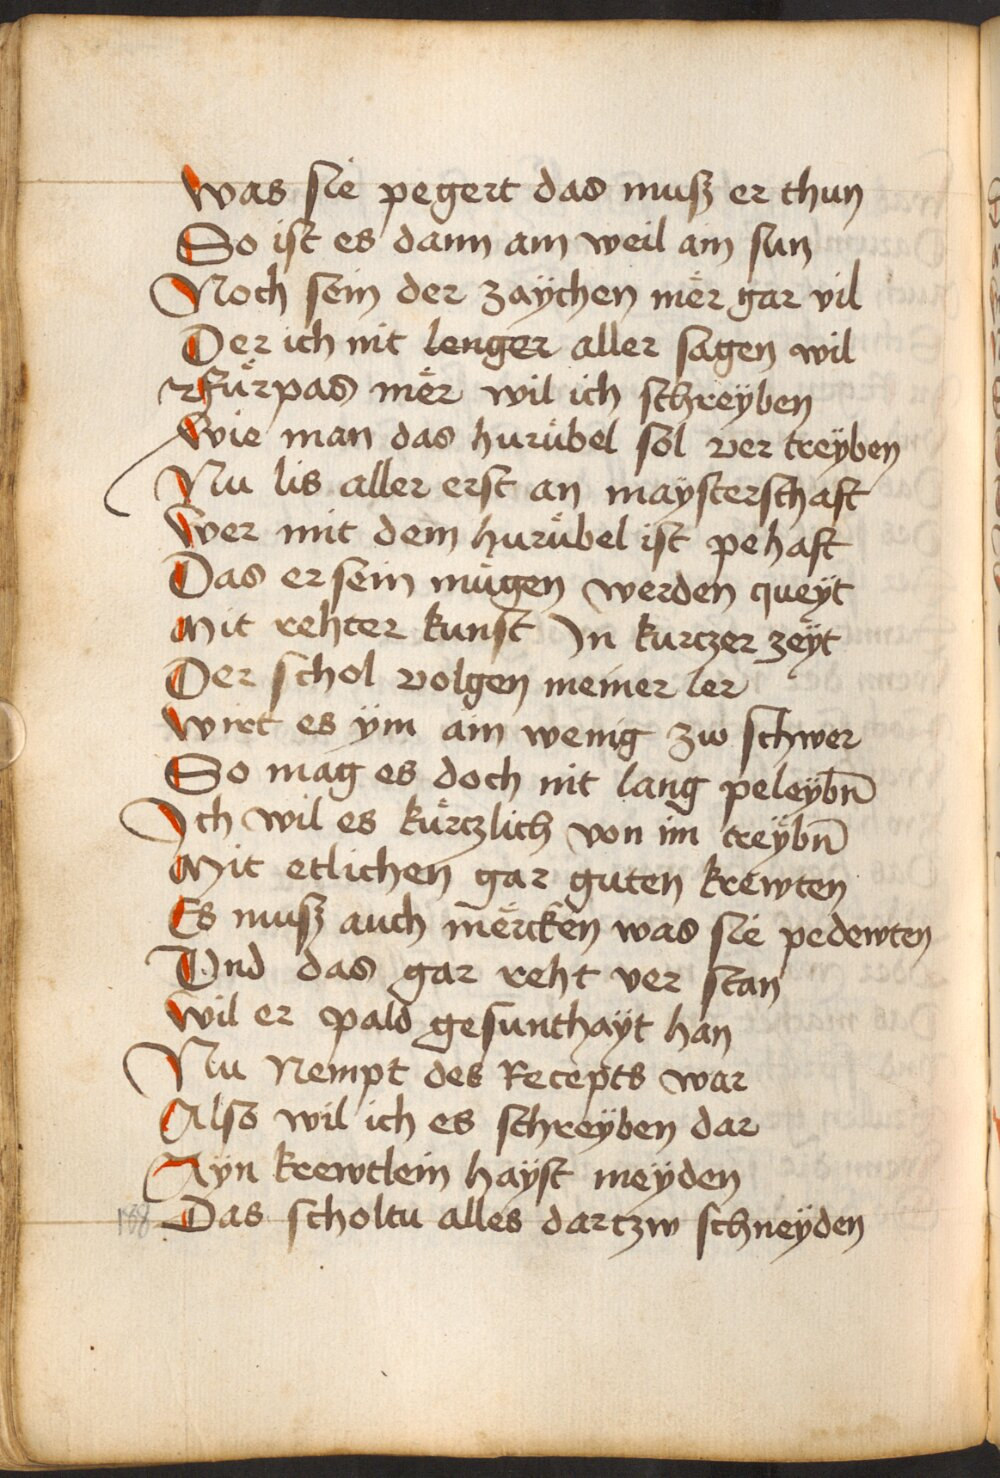 was sie pegert das muß er thun
So ist es dann am weil ain sun
Noch sein der zaÿchen mër gar vil
Der ich nit lenger aller sagen wil
fürpas mër wil ich schreÿben
Wie man das hurübel sol ver treÿben
Nu lis aller erst an maÿsterschaft
Wer mit dem hurübel ist pehaft
Das er sein mügen werden queÿt
Mit rehter kunst Jn kurtzer zeÿt
Der schol volgen meiner ler
wirt es ÿm ain wenig zw schwer
So mag es doch nit lang peleÿbn̄
Jch wil es kürtzlich von im treÿbn̄
Mit etlichen gar guten krewten
Es muß auch mercken was sie pedewten
Vnd das gar reht ver stan
wil er pald gesunthaÿt han
Nu Nempt des Recepts war
Also wil ich es schreÿben dar
Aÿn krewtlein haÿst meÿden
Das scholtu alles dartzw schneÿden
188